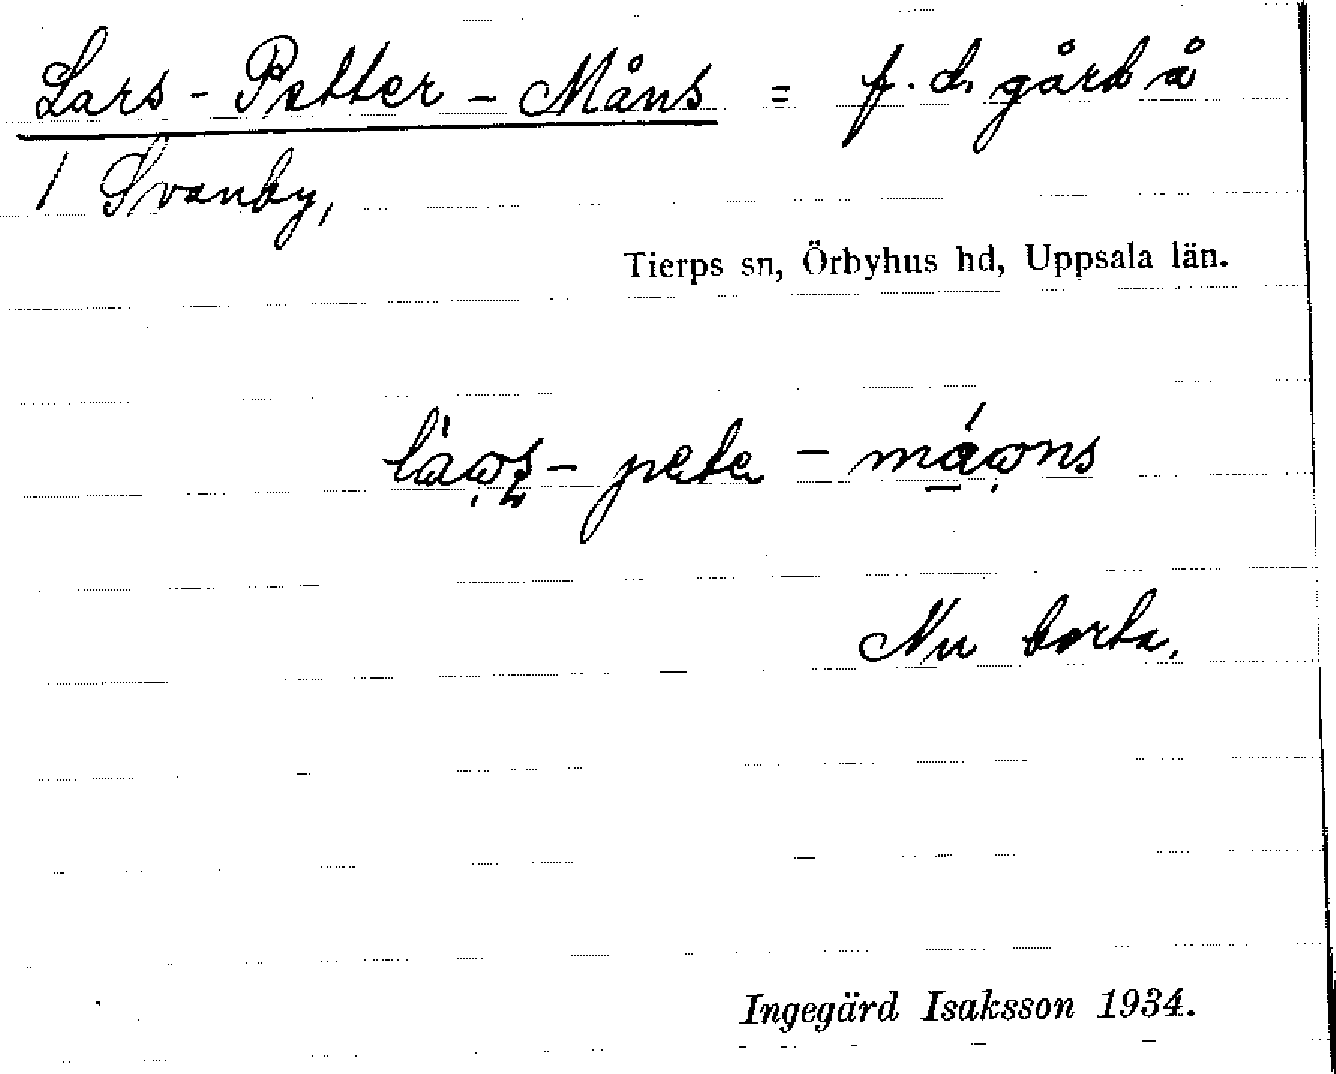 Lars-Petter-Måns = f.d. gård å
/ Svanby,
Tierps sn, Örbyhus hd, Uppsala län.
Nu borta.
Ingegärd Isaksson 1934.